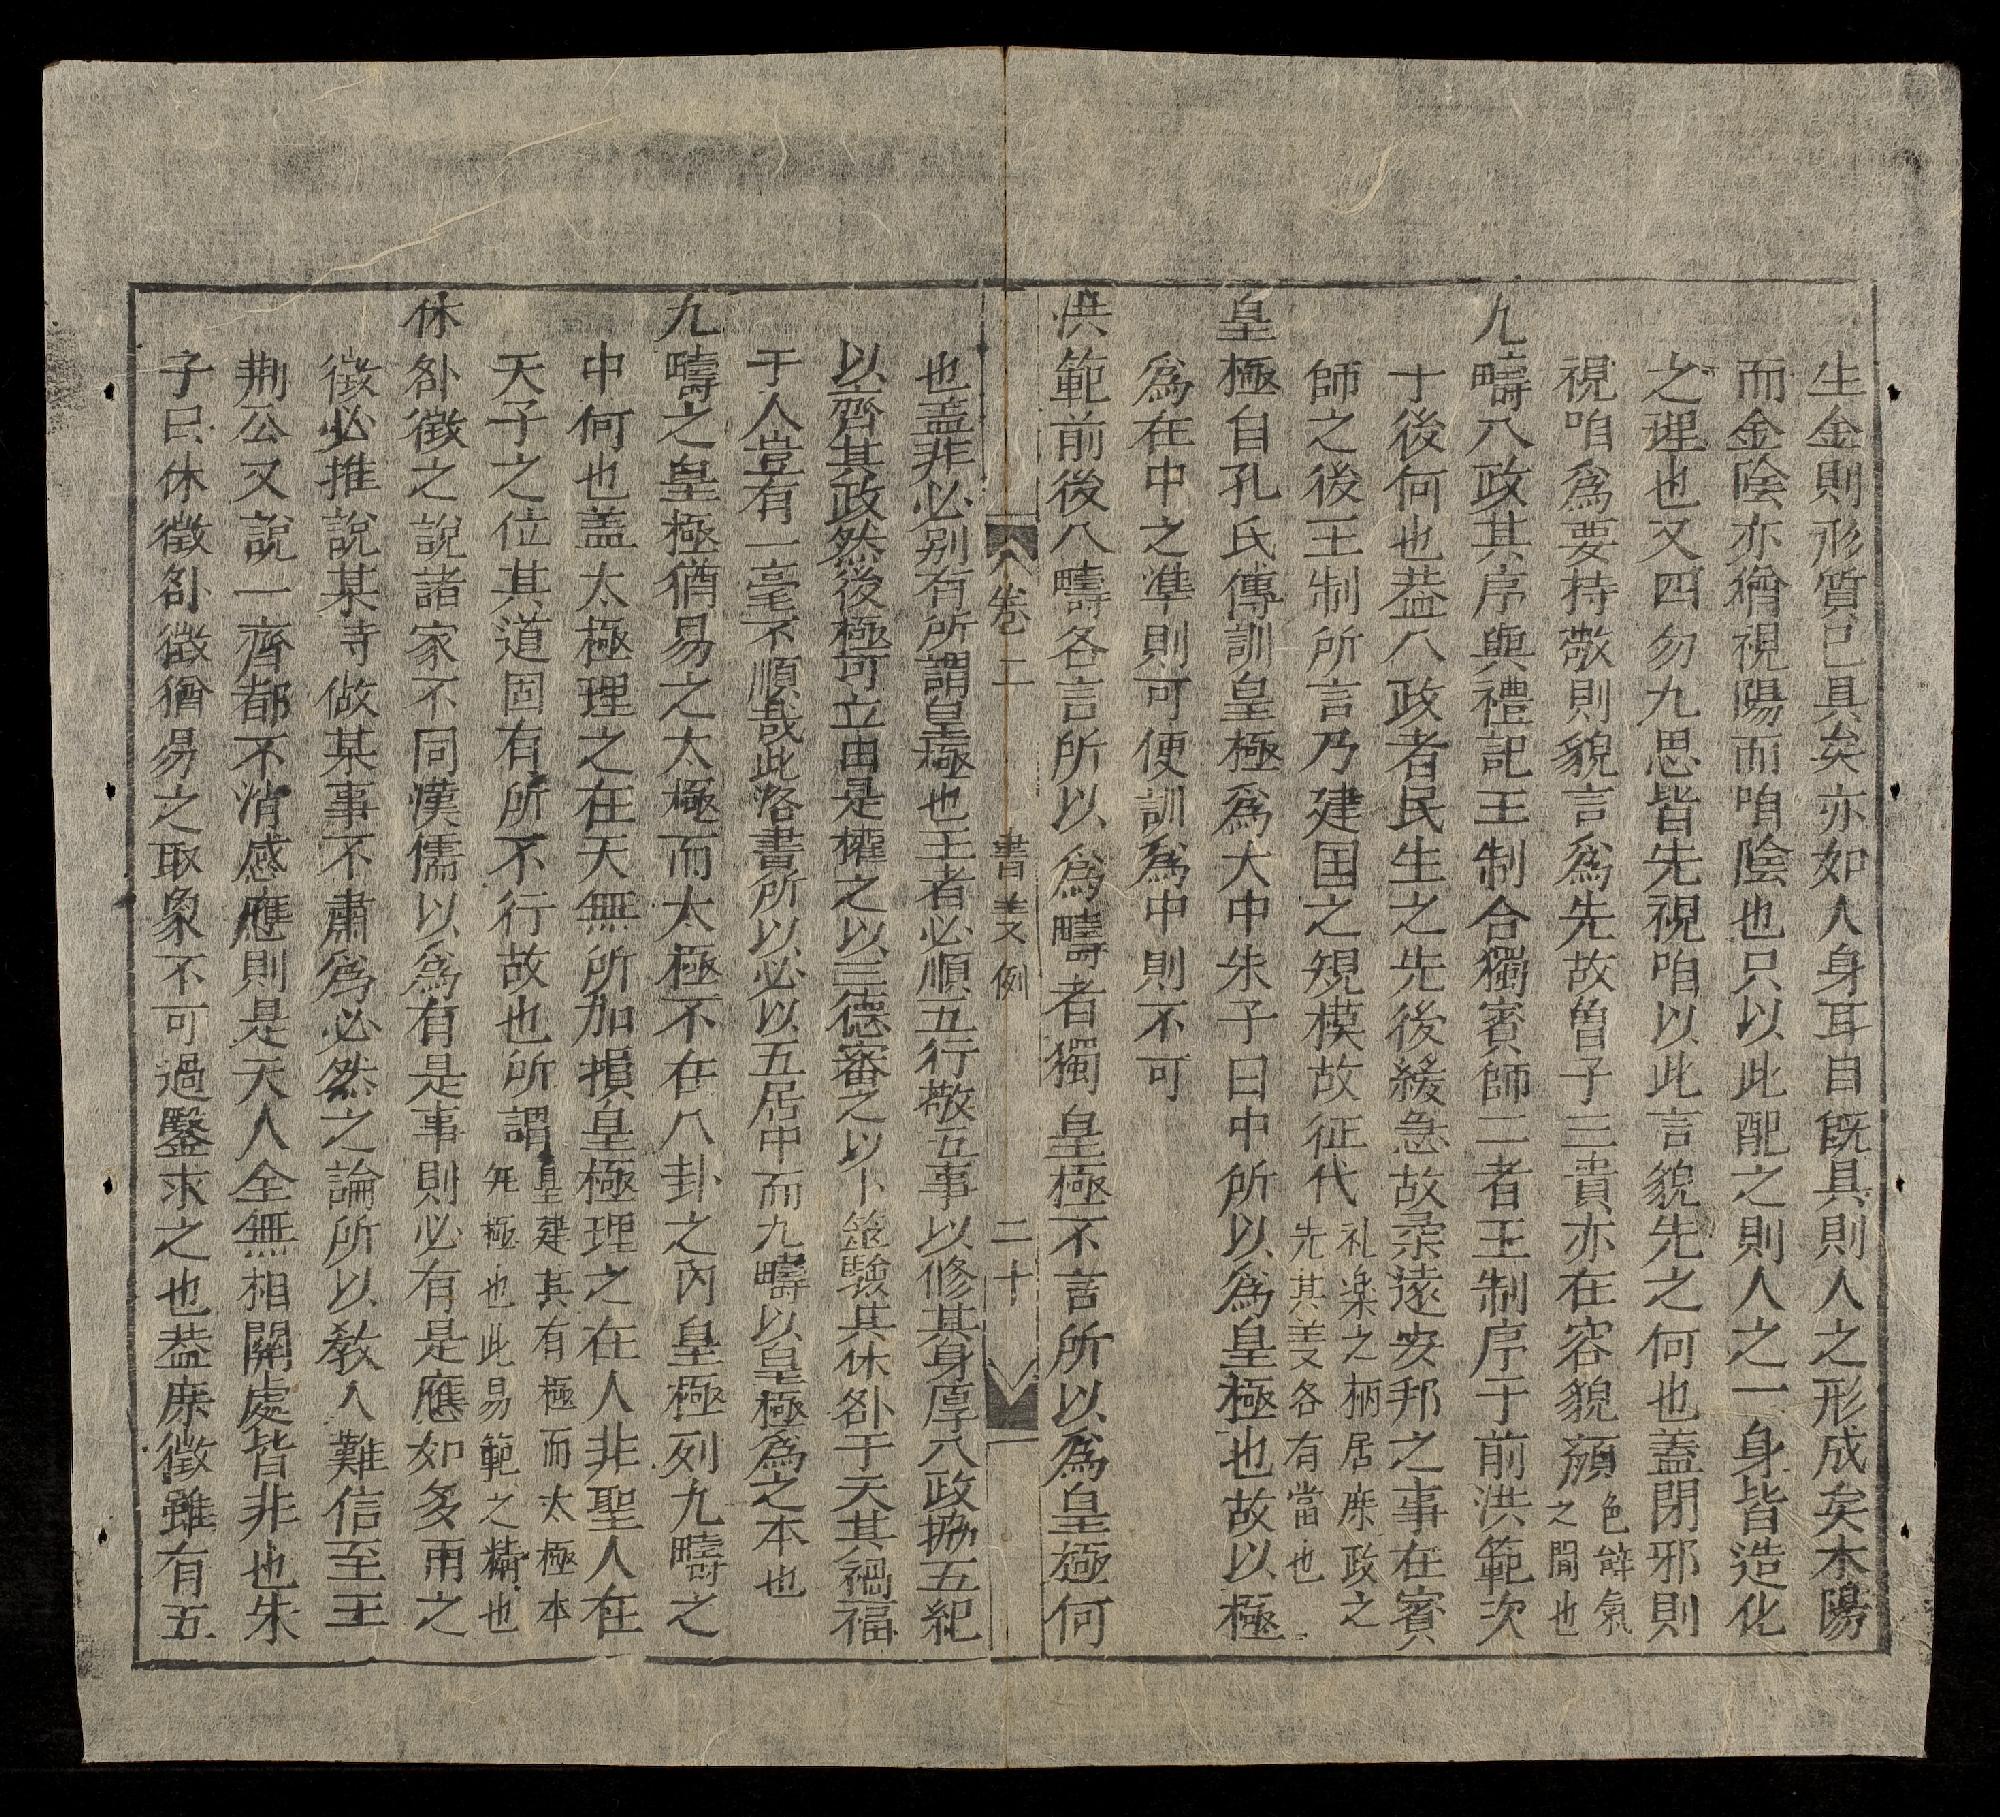 生金則形質已具矣亦如人身耳目旣具則人之形成矣木陽
而金陰亦猶視陽而咱陰也只以此配之則人之一身皆造化
之理也又四勿九思皆先視咱以此言貌先之何也盖閉邪則
視咱爲要持敬則貌言爲先故曾子三貴亦在容貌顔色辞氣之間也
九疇八政其序與禮記王制合獨賓師二者王制序于前洪範次
于後何也盖八政者民生之先後緩急故柔遠安邦之事在賓
師之後王制所言乃建国之規模故征代礼楽之柄居庶政之先其义各有當也
皇極自孔氏傳訓皇極爲大中朱子曰中所以爲皇極也故以極
爲在中之準則可便訓爲中則不可
洪範前後八疇各言所以爲疇者獨皇極不言所以爲皇極何
卷二 書义例 二十
也盖非必别有所謂皇極也王者必順五行敬五事以修其身厚八政協五紀
以齊其政然後極可立由是權之以三德審之以卜筮驗其休咎于天其禍福
于人豈有一毫不順哉此洛書所以必以五居中而九疇以皇極爲之本也
九疇之皇極猶易之太極而太極不在八卦之內皇極列九疇之
中何也盖太極理之在天無所加損皇極理之在人非聖人在
天子之位其道固有所不行故也所謂皇建其有極而太極本无極也此易範之精也
休咎徵之說諸家不同漢儒以爲有是事則必有是應如多雨之
徵必推說某時做某事不肅爲必然之論所以敎人難信至王
荆公又說一齊都不消感應則是天人全無相關處皆非也朱
子曰休徵咎徵猶易之取象不可過鑿求之也盖庶徵雖有五